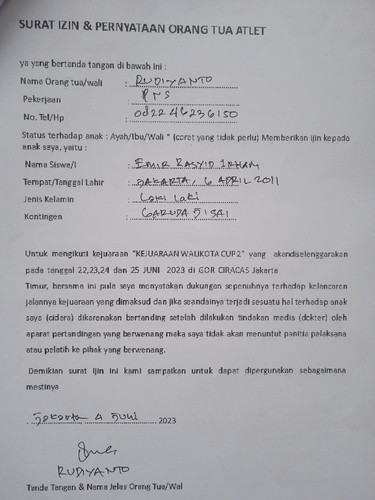 SURAT IZIN & PERNYATAAN ORANG TUA ATLET
ya yang bertanda tangan di bawah ini :
Nama Orang tua/wali : RUDIYANTO
Pekerjaan : PNS
No. Tel/Hp : 082246236150
Status terhadap anak : Ayah/Ibu/Wali * (coret yang tidak perlu) Memberikan Ijin kepada
anak saya, yaitu :
Nama Siswa/i : EMIR RASYID IRHAM
Tempat/Tanggal Lahir : JAKARTA, 6 APRIL 2011
Jenis Kelamin : Laki laki
Kontingen : GARUDA SISAI
Untuk mengikuti kejuaraan "KEJUARAAN WALIKOTA CUP 2" yang akandiselenggarakan
pada tanggal 22,23,24 dan 25 JUNI 2023 di GOR CIRACAS Jakarta
Timur, bersama ini pula saya menyatakan dukungan sepenuhnya terhadap kelancaran
jalannya kejuaraan yang dimaksud dan jika seandainya terjadi sesuatu hal terhadap anak
saya (cidera) dikarenakan bertanding setelah dilakukan tindakan media (dokter) oleh
aparat pertandingan yang berwenang maka saya tidak akan menuntut panitia pelaksana
atau pelatih ke pihak yang berwenang.
Demikian surat Ijin ini kami sampaikan untuk dapat dipergunakan sebagaimana
mestinya
Jakarta 4 Juni 2023
RUDIYANTO
Tanda Tangan & Nama Jelas Orang Tua/Wal